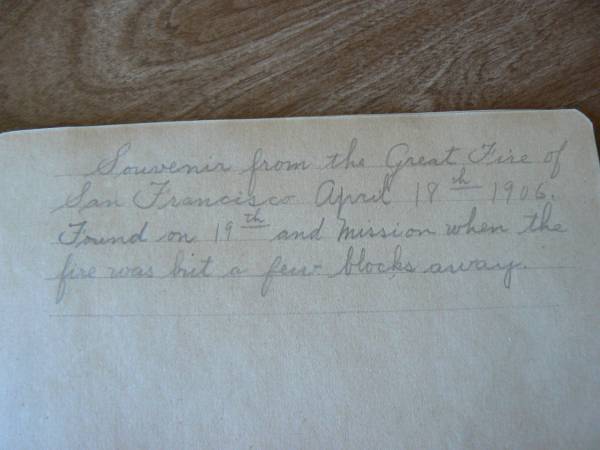 Souvenir from the Great Fire of
San Francisco April 18th 1906.
Found on 19th and Mission when the
fire was but a few blocks away.